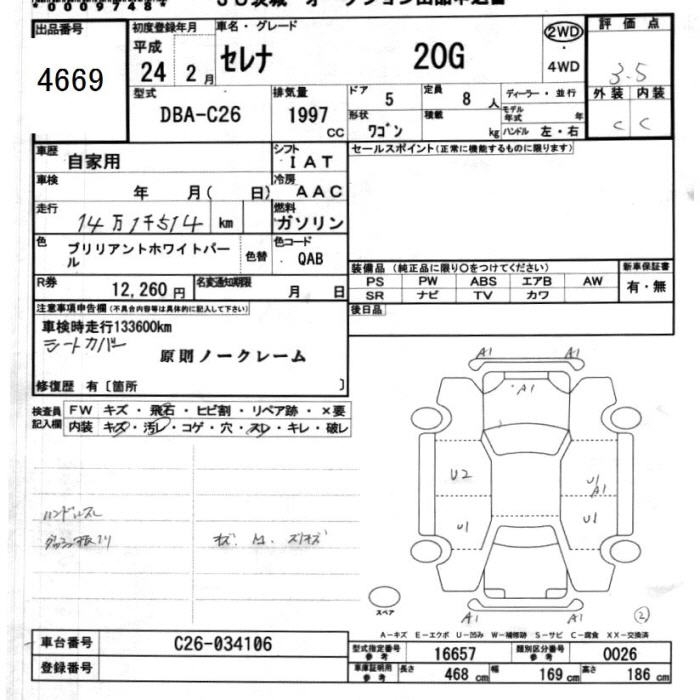 出品番号
4669
初度登録年月
平成
24 2月
車名・グレード
セレナ 20G
2WD
・
4WD
評価点
3.5
外装 内装
C C
型式
DBA-C26
排気量
1997
CC
ドア
5
定員
8 人
形状
ワゴン
積載
kg
ディーラー・並行
モデル年式 年
ハンドル 左・右
車歴
自家用
シフト
IAT
車検
年 月( 日)
冷房
AAC
走行
14万1千514 km
燃料
ガソリン
色
ブリリアントホワイトパール
色替
色コード
QAB
R券
12,260円
名変通知期限
月 日
セールスポイント(正常に機能するものに限ります)
装備品 (純正品に限り○をつけてください)
PS PW ABS エアB AW
SR ナビ TV カワ
新車保証書
有・無
後日品
注意事項申告欄(不具合内容等は具体的に記入して下さい)
車検時走行133600km
シートカバー
原則ノークレーム
修復歴 有〔箇所 〕
検査員記入欄
FW キズ・飛石・ヒビ割・リペア跡・×要
内装 キズ・汚レ・コゲ・穴・スレ・キレ・破レ
ハンドルスレ
A1 A1
A1
U2
U1
U1
A1
U1
A1 A1
スペア
2
A-キズ E-エクボ U-凹み W-補修跡 S-サビ C-腐食 XX-交換済
車台番号
C26-034106
登録番号
型式指定番号
参考
16657
類別区分番号
参考
0026
車庫証明用
参考
長さ 468 cm 幅 169 cm 高さ 186 cm